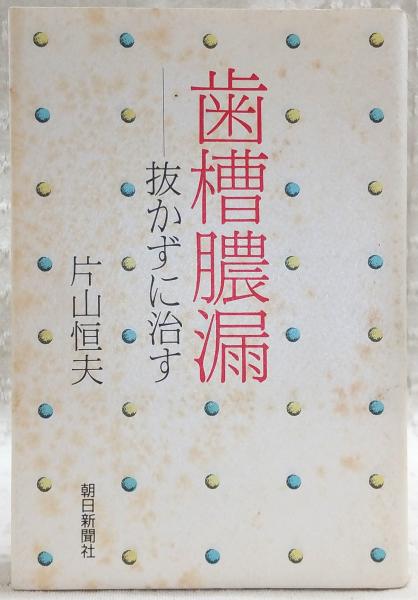 歯槽膿漏
──抜かずに治す
片山恒夫
朝日新聞社